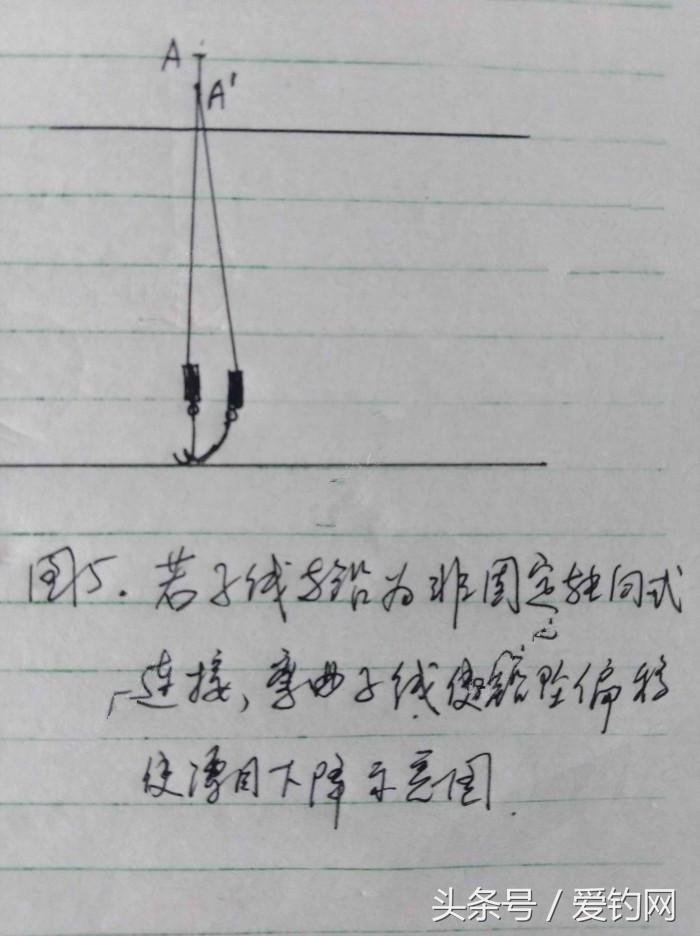 A
A'
图5. 若子线与铅为非固定轴向式
连接, 弯曲子线使铅坠偏移
使漂目下降示意图.
头条号 / 爱钓网